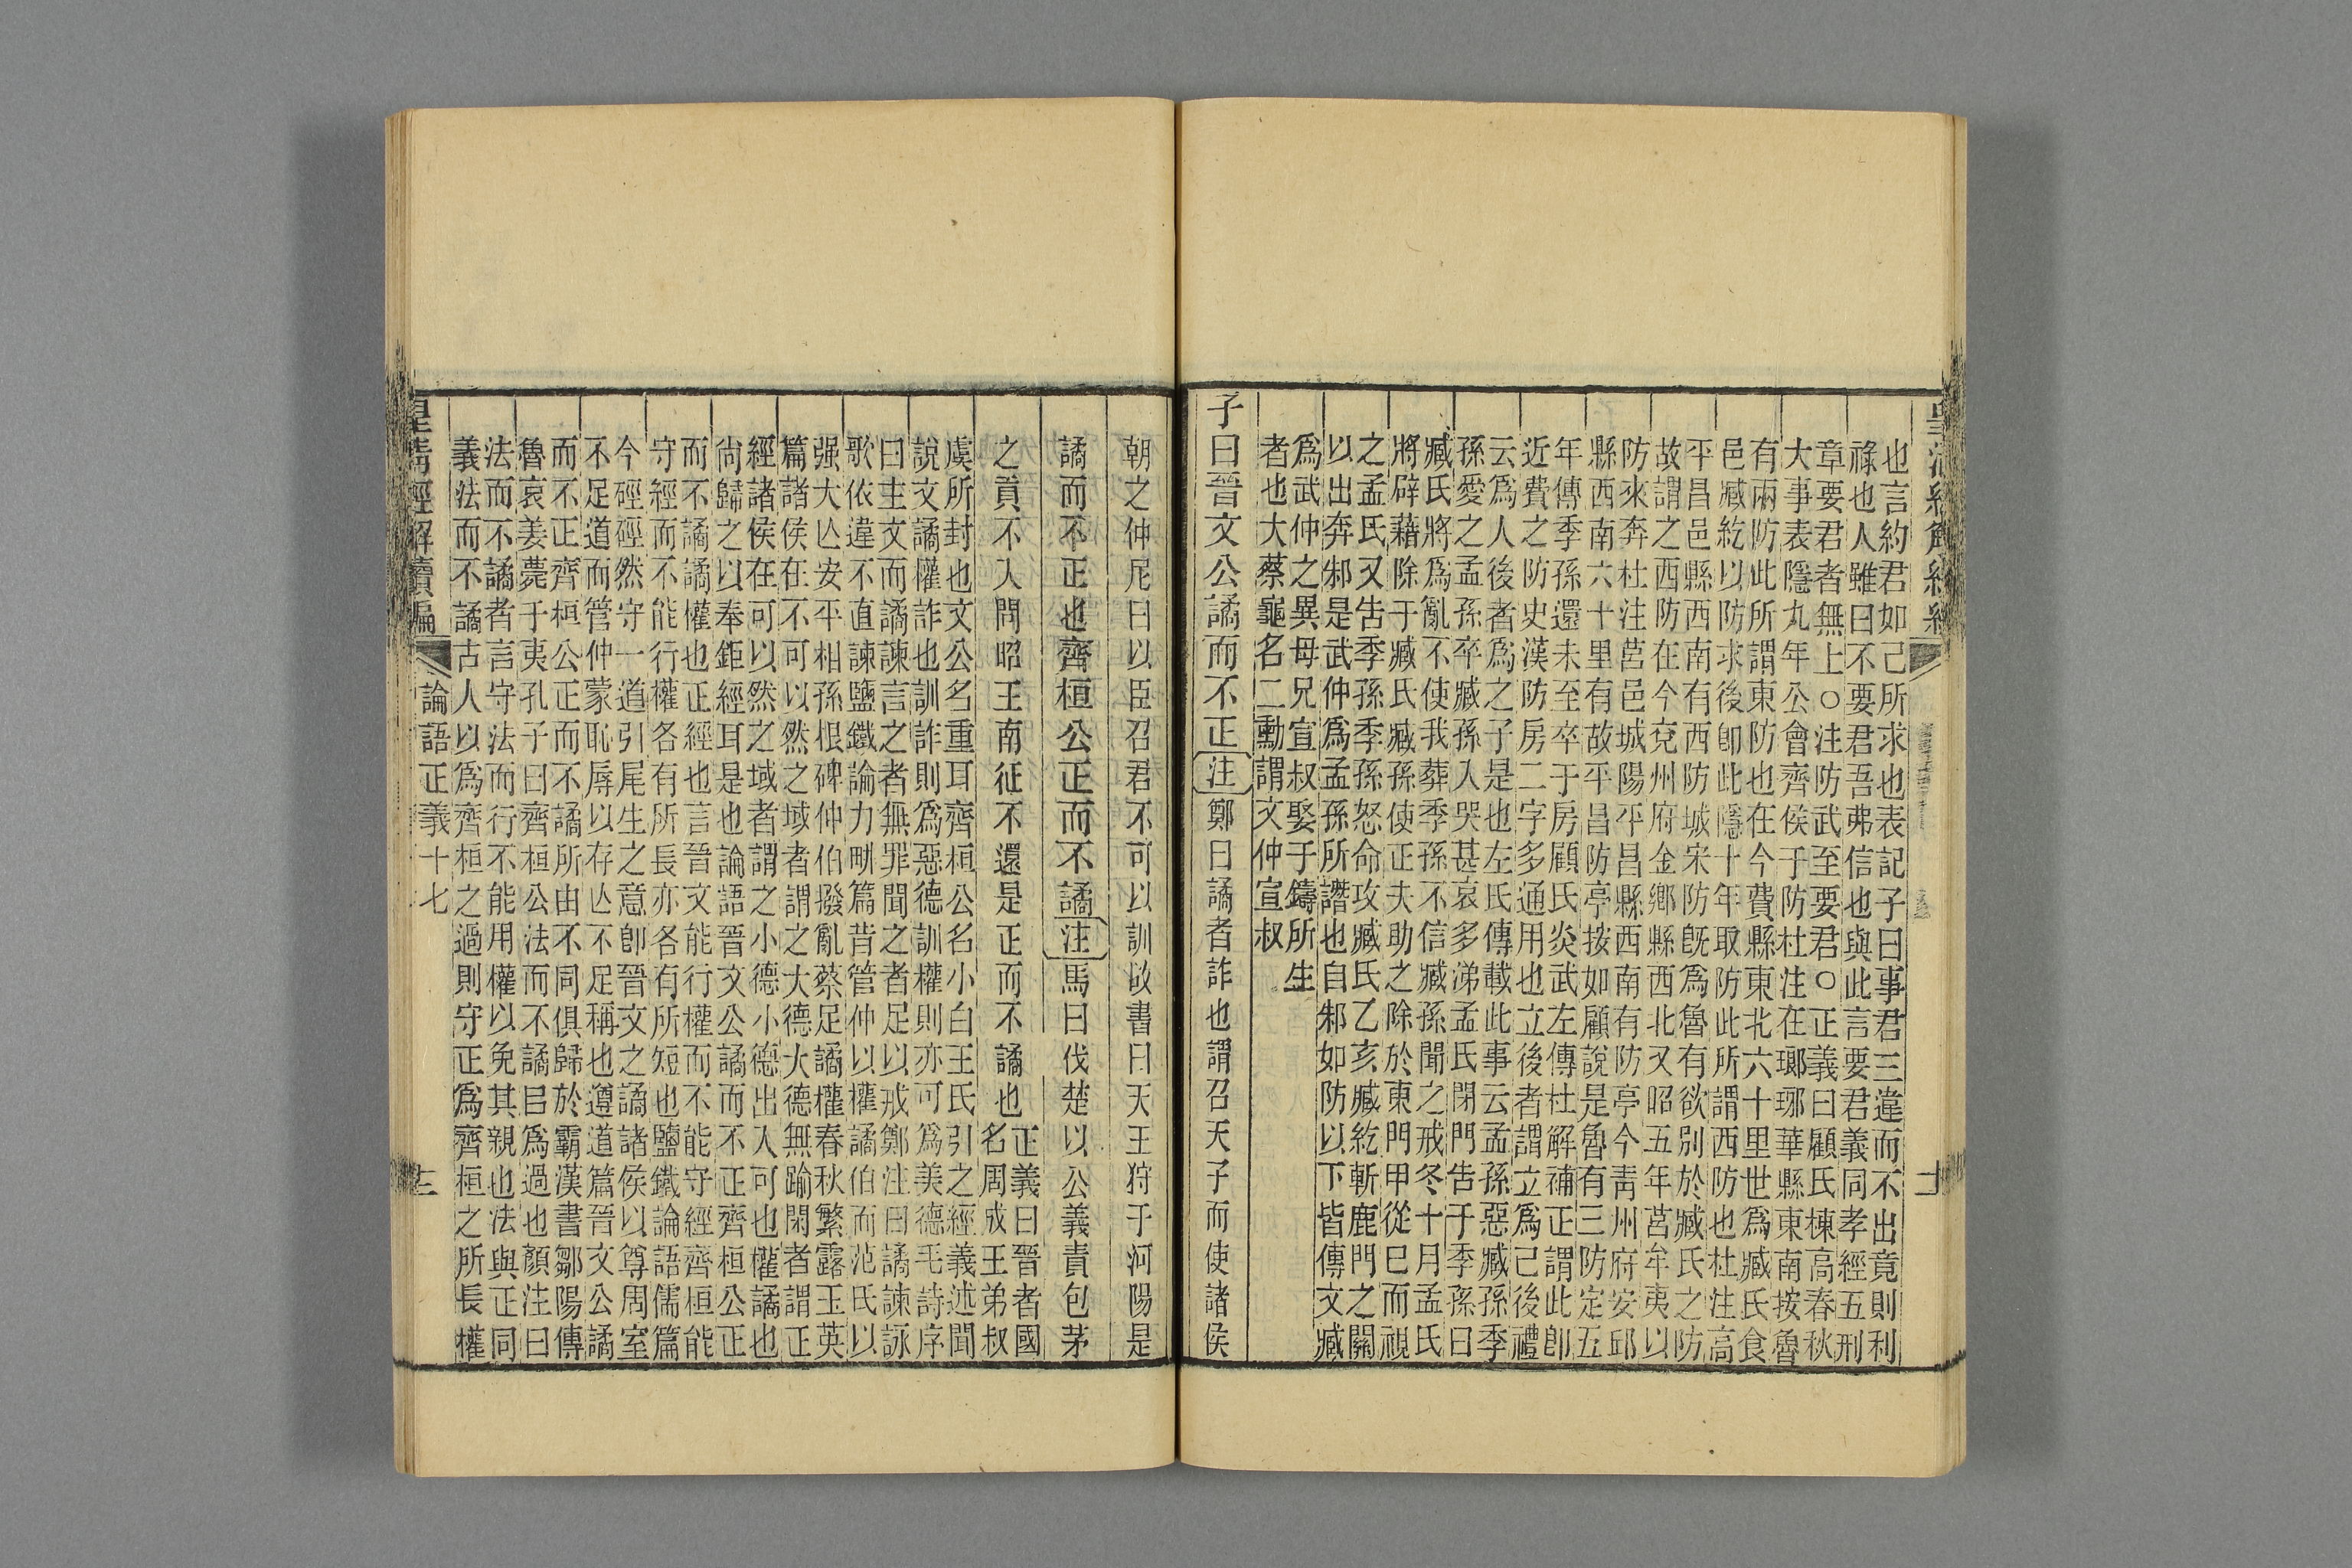 也言約君如己所求也表記子曰事君三違而不出竟則利
祿也人雖曰不要君吾弗信也與此言要君義同孝經五刑
章要君者無上○注防武至要君○正義曰顧氏棟高春秋
大事表隱九年公會齊侯于防杜注在瑯琊華縣東南按魯
有兩防此所謂東防也在今費縣東北六十里世為臧氏食
邑臧紇以防求後卽此隱十年取防此所謂西防也杜注高
平昌邑縣西南有西防城宋防旣為魯有欲別於臧氏之防
故謂之西防在今兗州府金鄉縣西北又昭五年莒牟夷以
防來奔杜注莒邑城陽平昌縣西南有防亭今靑州府安邱
縣西南六十里有故平昌防亭按如顧說是魯有三防定五
年傳季孫還未至卒于房顧氏炎武左傳杜解補正謂此卽
近費之防史漢防房二字多通用也立後者謂立為己後禮
云為人後者為之子是也左氏傳載此事云孟孫惡臧孫季
孫愛之孟孫卒臧孫入哭甚哀多涕孟氏閉門告于季孫曰
臧氏將為亂不使我葬季孫不信臧孫聞之戒冬十月孟氏
將辟藉除于臧氏臧孫使正夫助之除於東門甲從己而視
之孟氏又告季孫季孫怒命攻臧氏乙亥臧紇斬鹿門之關
以出奔邾是武仲為孟孫所譖也自邾如防以下皆傳文臧
為武仲之異母兄宣叔娶于鑄所生
者也大蔡龜名二勳謂文仲宣叔
子曰晉文公譎而不正注鄭曰譎者詐也謂召天子而使諸侯
朝之仲尼曰以臣召君不可以訓故書曰天王狩于河陽是
譎而不正也齊桓公正而不譎注馬曰伐楚以公義責包茅
之貢不入問昭王南征不還是正而不譎也
正義曰晉者國
名周成王弟叔
虞所封也文公名重耳齊桓公名小白王氏引之經義述聞
說文譎權詐也訓詐則為惡德訓權則亦可為美德毛詩序
曰主文而譎諫言之者無罪聞之者足以戒鄭注曰譎諫詠
歌依違不直諫鹽鐵論力畊篇昔管仲以權譎伯而范氏以
强大亾安平相孫根碑仲伯撥亂蔡足譎權春秋繁露玉英
篇諸侯在不可以然之域者謂之大德大德無踰閑者謂正
經諸侯在可以然之域者謂之小德小德出入可也權譎也
尙歸之以奉鉅經耳是也論語晉文公譎而不正齊桓公正
而不譎譎權也正經也言晉文能行權而不能守經齊桓能
守經而不能行權各有所長亦各有所短也鹽鐵論語儒篇
今硜硜然守一道引尾生之意卽晉文之譎諸侯以尊周室
不足道而管仲蒙恥辱以存亾不足稱也遵道篇晉文公譎
而不正齊桓公正而不譎所由不同俱歸於霸漢書鄒陽傳
魯哀姜薨于夷孔子曰齊桓公法而不譎㠯為過也顏注曰
法而不譎者言守法而行不能用權以免其親也法與正同
義法而不譎古人以為齊桓之過則守正為齊桓之所長權
皇淸經解續編
論語正義十七
十二